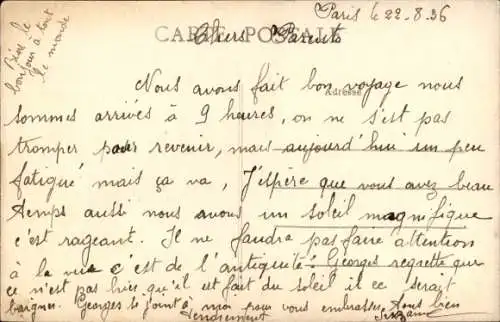 Paris le 22-8-36
CARTE POSTALE
Chers Parents
Bien le
bonjour à tout
le monde
Adresse
Nous avons fait bon voyage nous
sommes arrivés à 9 heures, on ne s'est pas
tromper pour revenir, mais aujourd'hui un peu
fatigué mais ça va, J'espère que vous avez beau
temps aussi nous avons un soleil magnifique
c'est rageant. Il ne faudra pas faire attention
à la vue c'est de l'antiquité. Georges regrette que
ce n'est pas hier qu'il ait fait du soleil il ce serait
baigner. Georges se joint à moi pour vous embrasser tous bien
tendrement Suzanne